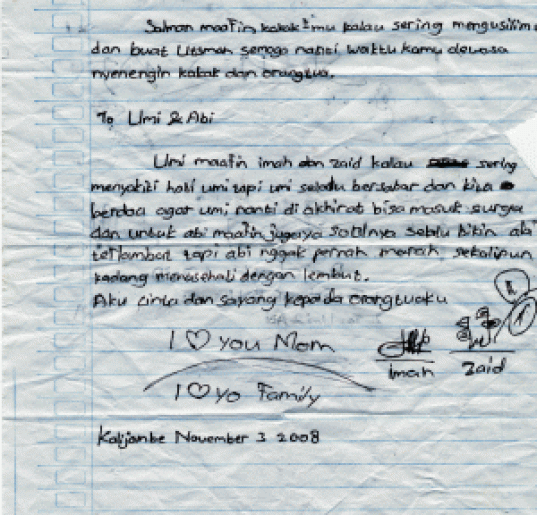 Salman maafin kakak²mu kalau sering mengusilim
dan buat Utsman semoga nanti waktu kamu dewasa
nyenengin kakak dan orangtua.
To Umi & Abi
Umi maafin imah dan zaid kalau sering
menyakiti hati umi tapi umi selalu bersabar dan kita
berdoa agar umi nanti di akhirat bisa masuk surga
dan untuk abi maafin jugaya soalnya selalu bikin abi
terlambat tapi abi nggak pernah marah sekalipun
kadang menasehati dengan lembut.
Aku cinta dan sayang kepada orangtuaku
I ♡ you Mom
Imah Zaid
I ♡ yo Family
November 3 2008